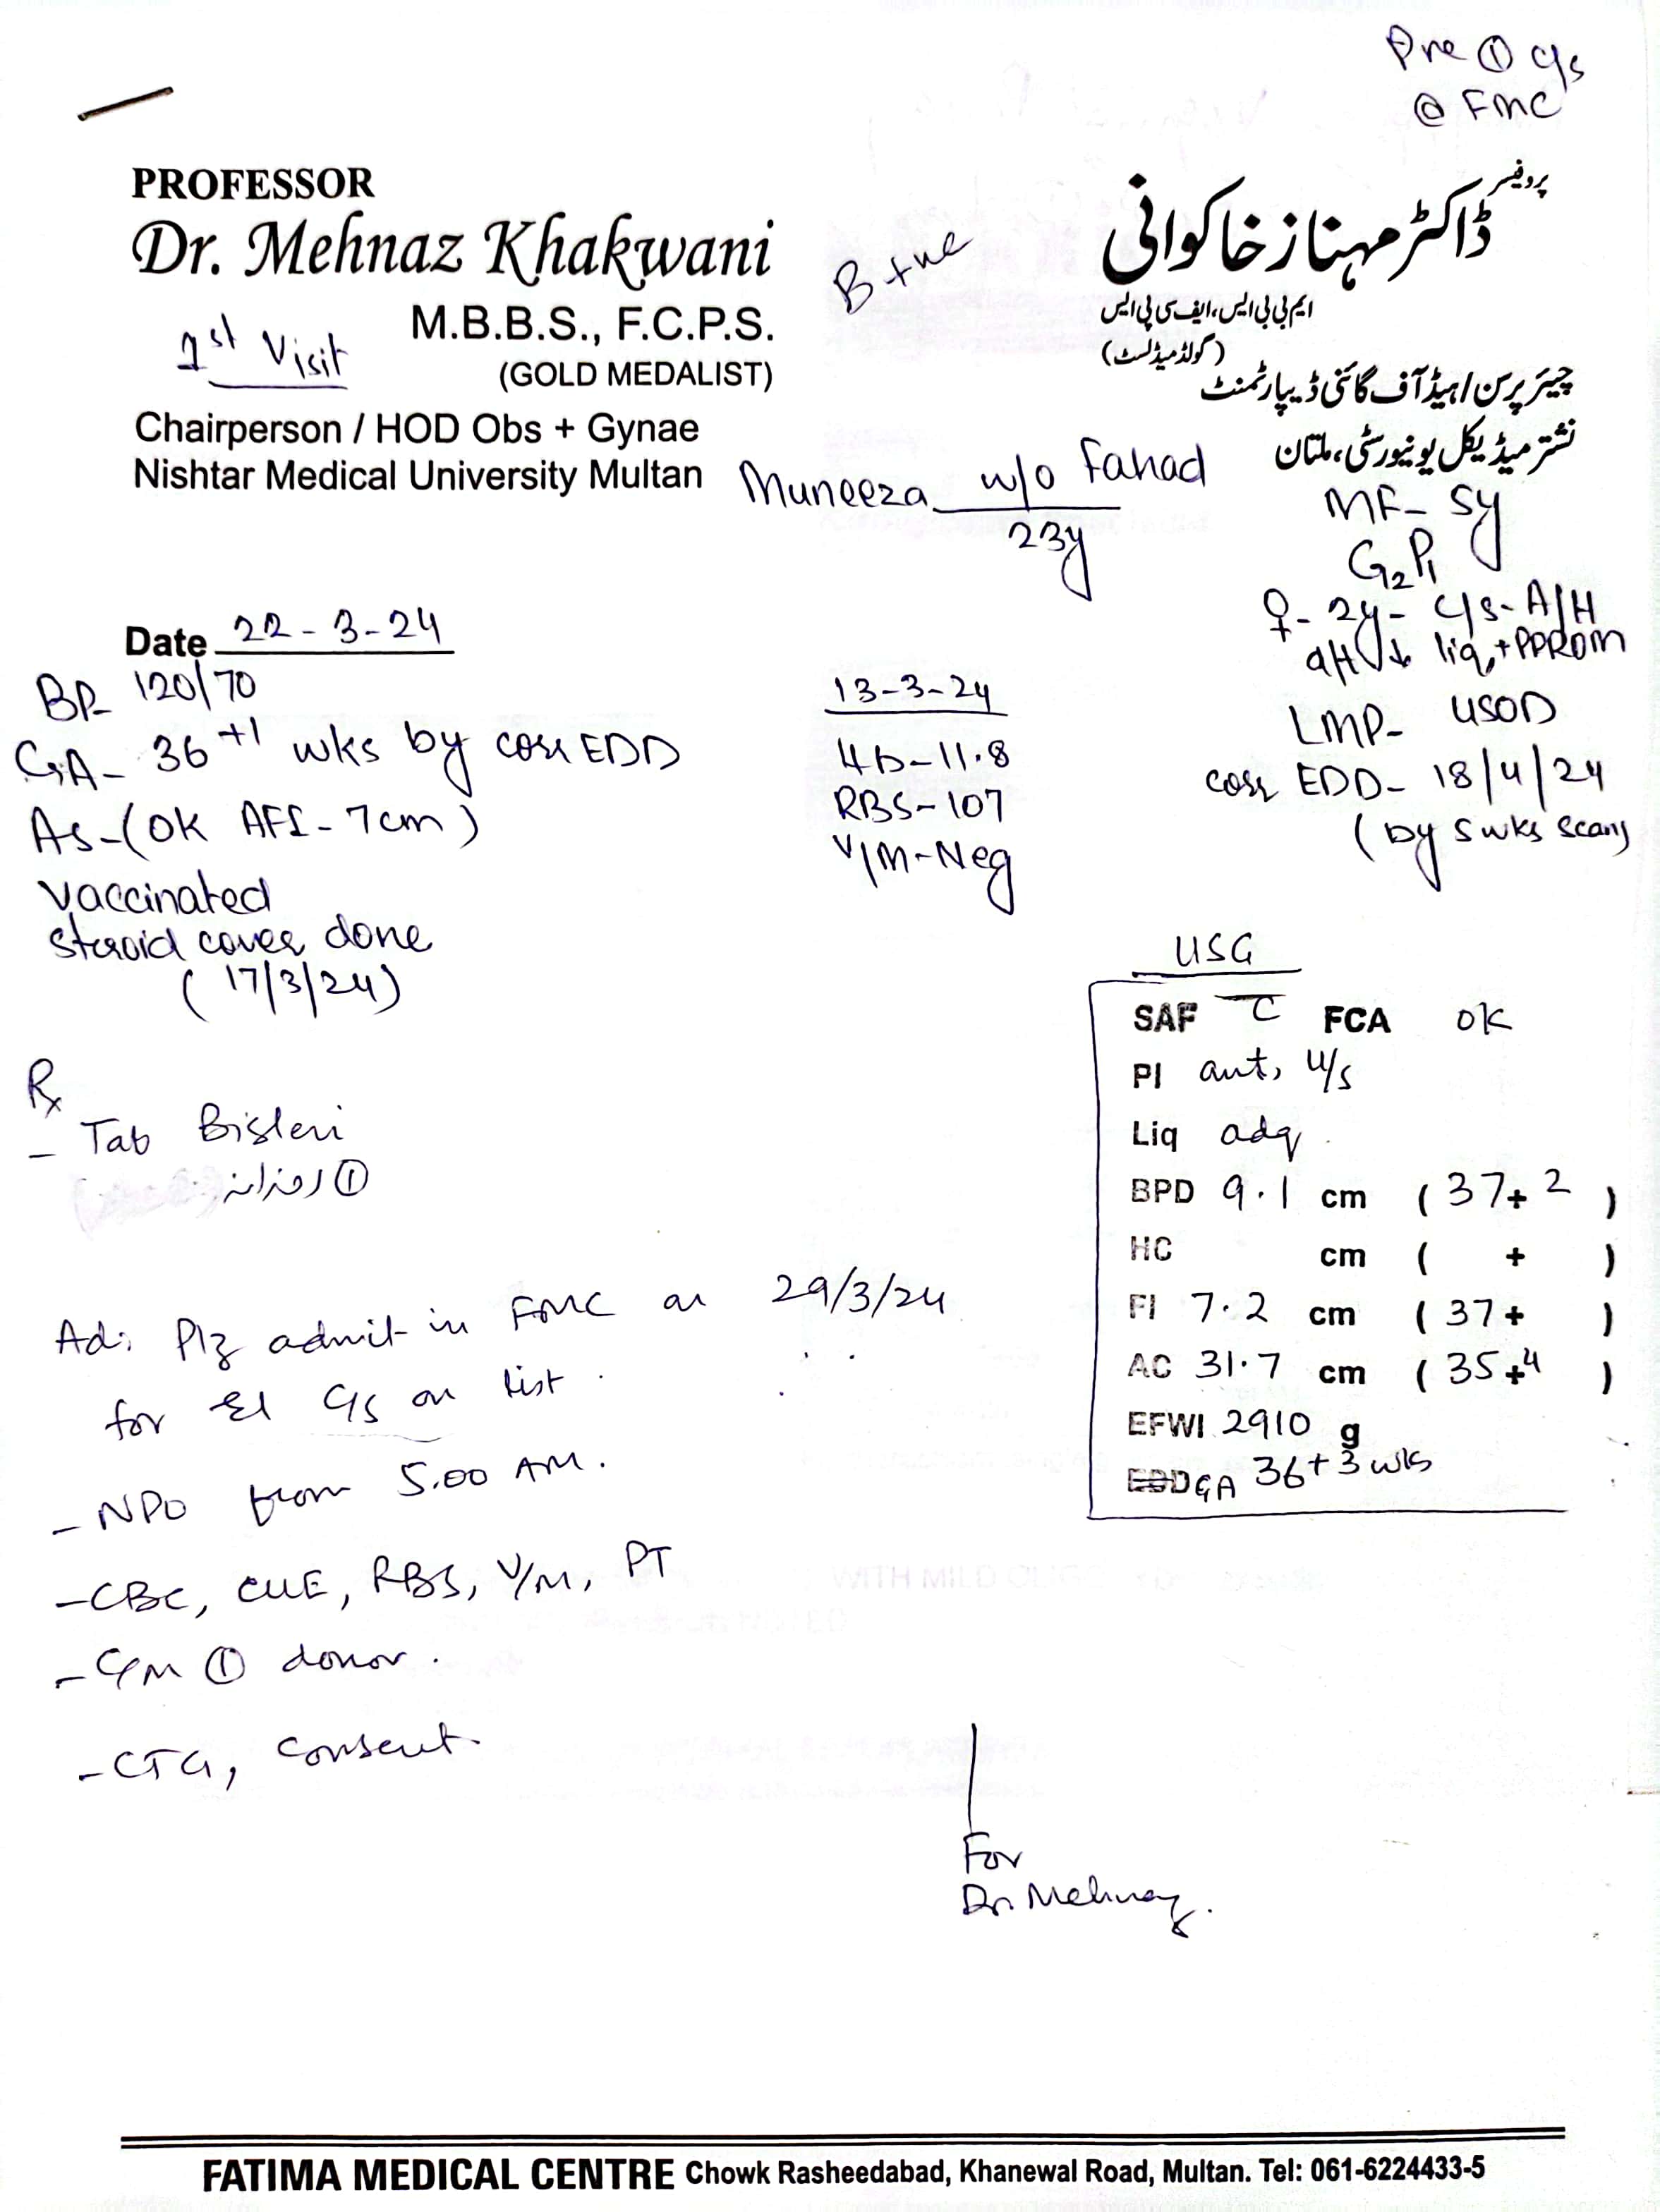 Pre ① c/s
@ FMC
PROFESSOR
Dr. Mehnaz Khakwani
M.B.B.S., F.C.P.S.
(GOLD MEDALIST)
1st Visit
Chairperson / HOD Obs + Gynae
Nishtar Medical University Multan
B +ve
پروفیسر
ڈاکٹر مہناز خاکوانی
ایم بی بی ایس، ایف سی پی ایس
(گولڈ میڈلسٹ)
چیئر پرسن / ہیڈ آف گائنی ڈیپارٹمنٹ
نشتر میڈیکل یونیورسٹی، ملتان
Muneeza w/o Fahad
23y
MF- 5y
G2P1
♀- 2y- c/s- A/H
a/H ↓ liq, + PPROM
LMP- USOD
corr EDD- 18/4/24
(by 5 wks scan)
Date 22-3-24
BP- 120/70
GA- 36+1 wks by corr EDD
As-(OK AFI- 7cm)
vaccinated
steroid cover done
(17/3/24)
13-3-24
Hb-11.8
RBS-107
V/M-Neg
USG
SAF C FCA OK
Pl ant, u/s
Liq adq.
BPD 9.1 cm (37+2)
HC cm ( + )
Fl 7.2 cm (37+ )
AC 31.7 cm (35+4)
EFWt 2910 g
EDD GA 36+3 wks
Rx
- Tab Bisleri
① روزانہ
Ad: Plz admit in FMC on 29/3/24
for El c/s on list.
- NPO from 5.00 AM.
- CBC, CUE, RBS, V/M, PT
- C/M ① donor.
- CTG, Consent.
For
Dr. Mehnaz.
FATIMA MEDICAL CENTRE Chowk Rasheedabad, Khanewal Road, Multan. Tel: 061-6224433-5